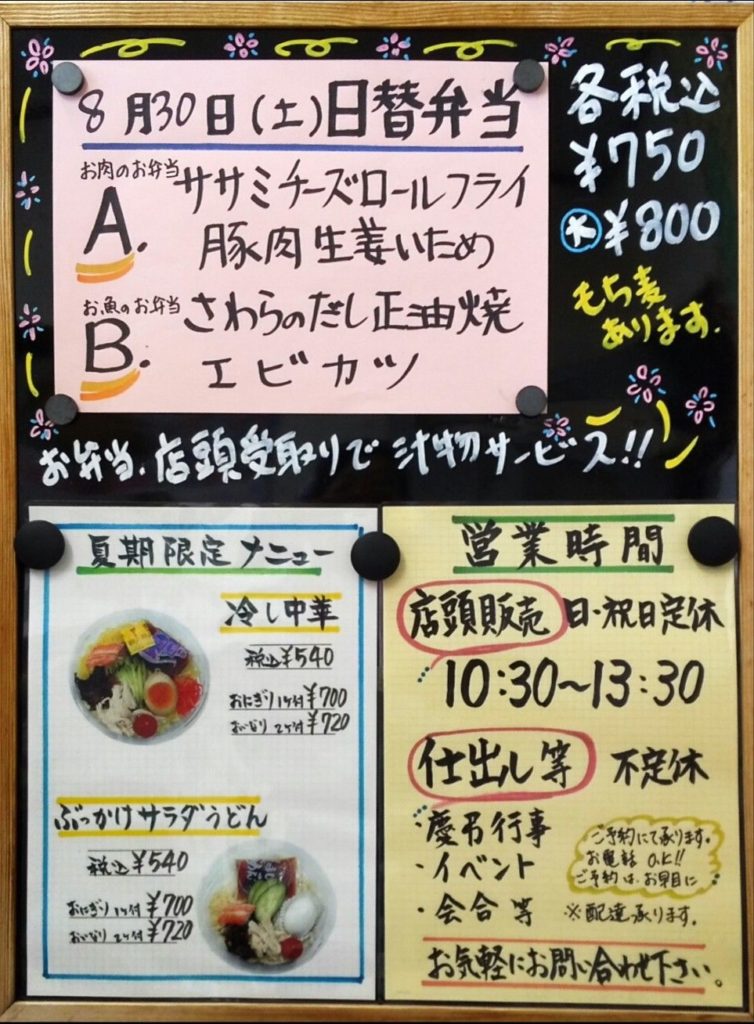 8月30日(土)日替弁当
お肉のお弁当
A.
ササミチーズロールフライ
豚肉生姜いため
お魚のお弁当
B.
さわらのだし正油焼
エビカツ
各税込
¥750
大 ¥800
もち麦
あります.
お弁当、店頭受取りで 汁物サービス!!
夏期限定メニュー
冷し中華
税込¥540
おにぎり1ケ付¥700
おいなり2ケ付¥720
ぶっかけサラダうどん
税込¥540
おにぎり1ケ付¥700
おいなり2ケ付¥720
営業時間
店頭販売 日・祝日定休
10:30~13:30
仕出し等 不定休
・慶弔行事
・イベント
・会合等
ご予約にて承ります。
お電話 O.K!!
ご予約は、お早目に
※配達承ります.
お気軽にお問い合わせ下さい。